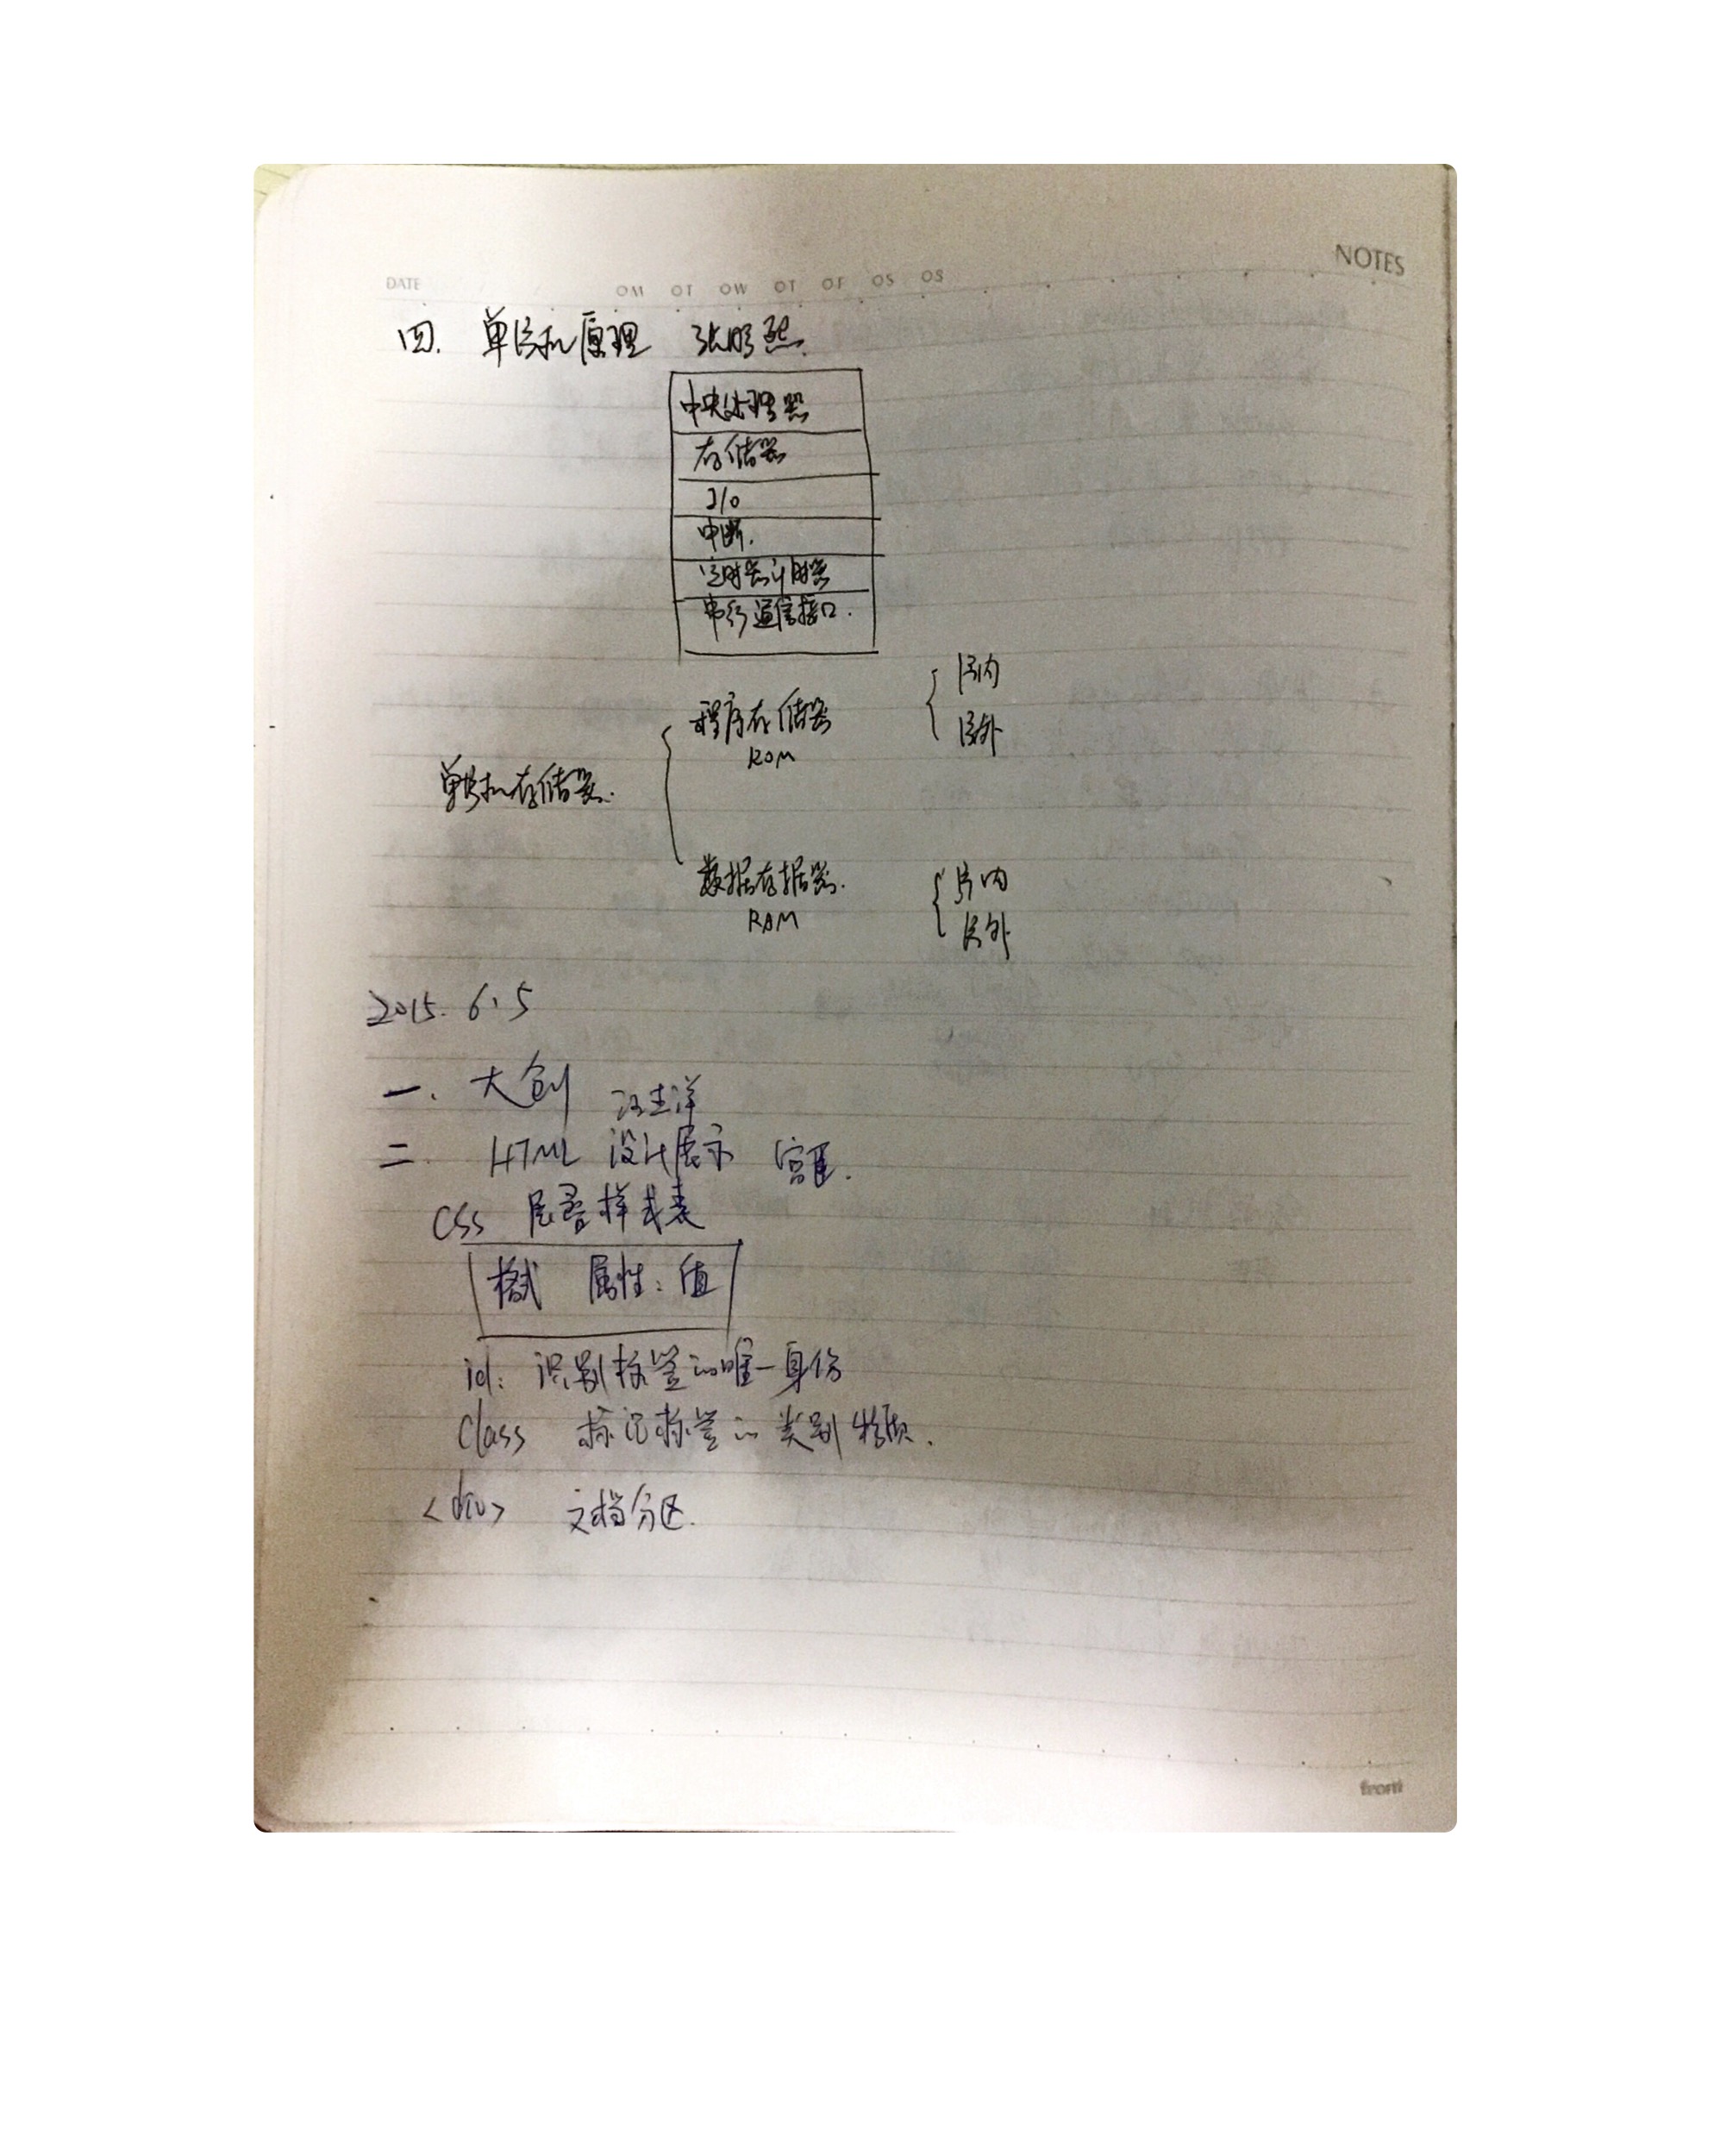 NOTES
DATE OM OT OW OT OF OS OS
四. 单片机原理 张彤熙.
中央处理器
存储器
I/O
中断.
定时器计时器
串行通信接口.
程序存储器 { 片内
ROM 片外
单片机存储器.
数据存据器. { 片内
RAM 片外
2015. 6. 5
一. 大创 汪生洋
二. HTML 设计展示
CSS 层叠样式表
格式 属性: 值
id: 识别标签的唯一身份
Class 标记标签的类别
<div> 文档分区.
front